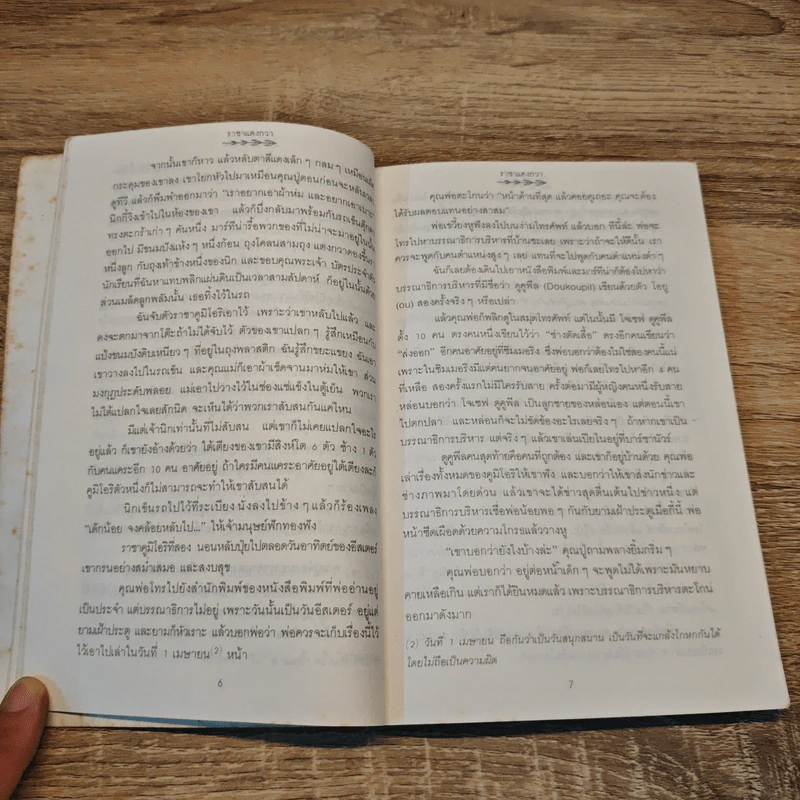 ราชาแตงกวา
จากนั้นเขาก็หาว แล้วหลับตาดีแดงเล็ก ๆ กลม ๆ เหมือนเม็ด
กระดุมของเขาลง เขาโยกหัวไปมาเหมือนคุณปู่ตอนก่อนจะหลับเวลา
ดูทีวี แล้วก็พึมพำออกมาว่า "เราอยากเอาผ้าห่ม และอยากเอาเปลนอน
นิกก็วิ่งเข้าไปในห้องของเขา แล้วก็บึ่งกลับมาพร้อมกับรถเข็นตุ๊กตา
ทรงตะกร้าเก่า ๆ คันหนึ่ง มาร์ทีน่ารื้อพวกของที่ไม่น่าจะมาอยู่ในนั้น
ออกไป มีขนมปังแห้ง ๆ หนึ่งก้อน ถุงโคลนสามถุง แตงกวาดองชิ้น
หนึ่งลูก กับถุงเท้าข้างหนึ่งของนิก และขอบคุณพระเจ้า บัตรประจำตัว
นักเรียนที่ฉันหาแทบพลิกแผ่นดินเป็นเวลาสามสัปดาห์ ก็อยู่ในนั้นด้วย
ส่วนเมล็ดลูกพลัมนั้น เธอทิ้งไว้ในรถ
ฉันจับตัวราชาคูมิโอริเอาไว้ เพราะว่าเขาหลับไปแล้ว และ
คงจะตกมาจากโต๊ะถ้าไม่ได้จับไว้ ตัวของเขาแปลก ๆ รู้สึกเหมือนกับ
แป้งขนมปังเหนียว ๆ ที่อยู่ในถุงพลาสติก ฉันรู้สึกขยะแขยง ฉันเอา
เขาวางลงไปในรถเข็น และคุณแม่ก็เอาผ้าเช็ดจานมาห่มให้เขา ส่วน
มงกุฎประดับพลอย แม่เอาไปวางไว้ในช่องแช่แข็งในตู้เย็น พวกเรา
ไม่ได้แปลกใจเลยสักนิด จะเห็นได้ว่าพวกเราสับสนกันแค่ไหน
มีแต่เจ้านิกเท่านั้นที่ไม่สับสน แต่เขาก็ไม่เคยแปลกใจอะไร
อยู่แล้ว ก็เขายังอ้างด้วยว่า ใต้เตียงของเขามีสิงห์โต 6 ตัว ช้าง 1 ตัว
กับคนแคระอีก 10 คน อาศัยอยู่ ถ้าใครมีคนแคระอาศัยอยู่ใต้เตียงละก็
คูมิโอริตัวหนึ่งก็ไม่สามารถจะทำให้เขาสับสนได้
นิกเข็นรถไปไว้ที่ระเบียง นั่งลงไปข้าง ๆ แล้วก็ร้องเพลง
"เด็กน้อย จงคล้อยหลับไป..." ให้เจ้ามนุษย์ฟักทองฟัง
ราชาคูมิโอริที่สอง นอนหลับปุ๋ยไปตลอดวันอาทิตย์ของอีสเตอร์
เขากรนอย่างสม่ำเสมอ และสงบสุข
คุณพ่อโทรไปยังสำนักพิมพ์ของหนังสือพิมพ์ที่พ่ออ่านอยู่
เป็นประจำ แต่บรรณาธิการไม่อยู่ เพราะวันนั้นเป็นวันอีสเตอร์ อยู่แต่
ยามเฝ้าประตู และยามก็หัวเราะ แล้วบอกพ่อว่า พ่อควรจะเก็บเรื่องนี้ไว้
ไว้เอาไปเล่าในวันที่ 1 เมษายน(2) หน้า
6
ราชาแตงกวา
คุณพ่อตะโกนว่า "หน้าด้านที่สุด แล้วคอยดูเถอะ คุณจะต้อง
ได้รับผลตอบแทนอย่างสาสม"
พ่อเขวี้ยงหูฟังลงไปบนง่ามโทรศัพท์ แล้วบอก ทีนี้ล่ะ พ่อจะ
โทรไปหาบรรณาธิการบริหารที่บ้านซะเลย เพราะว่าถ้าจะให้ดีนั้น เรา
ควรจะพูดกับคนตำแหน่งสูง ๆ เลย แทนที่จะไปพูดกับคนตำแหน่งต่ำ ๆ
ฉันก็เลยต้องเดินไปเอาหนังสือพิมพ์และมาร์ทีน่าก็ต้องไปหาว่า
บรรณาธิการบริหารที่มีชื่อว่า ดูคูพีล (Doukoupil) เขียนด้วยตัว โอยู
(ou) สองครั้งจริง ๆ หรือเปล่า
แล้วคุณพ่อก็พลิกดูในสมุดโทรศัพท์ แต่ในนั้นมี โจเซฟ ดูคูพีล
ตั้ง 10 คน ตรงคนหนึ่งเขียนไว้ว่า "ช่างตัดเสื้อ" ตรงอีกคนเขียนว่า
"ส่งออก" อีกคนอาศัยอยู่ที่ซิมเมอริง ซึ่งพ่อบอกว่าต้องไม่ใช่สองคนนี้แน่
เพราะในซิมเมอริงมีแต่คนยากจนอาศัยอยู่ พ่อก็เลยโทรไปหาอีก 4 คน
ที่เหลือ สองครั้งแรกไม่มีใครรับสาย ครั้งต่อมามีผู้หญิงคนหนึ่งรับสาย
หล่อนบอกว่า โจเซฟ ดูคูพีล เป็นลูกชายของหล่อนเอง แต่ตอนนี้เขา
ไปตกปลา และหล่อนก็จะไม่ขัดข้องอะไรเลยจริง ๆ ถ้าหากเขาเป็น
บรรณาธิการบริหาร แต่จริง ๆ แล้วเขาเล่นเปียโนอยู่ที่บาร์ซานัวร์
ดูคูพีลคนสุดท้ายคือคนที่ถูกต้อง และเขาก็อยู่บ้านด้วย คุณพ่อ
เล่าเรื่องทั้งหมดของคูมิโอริให้เขาฟัง และบอกว่าให้เขาส่งนักข่าวและ
ช่างภาพมาโดยด่วน แล้วเขาจะได้ข่าวสุดตื่นเต้นไปข่าวหนึ่ง แต่
บรรณาธิการบริหารเชื่อพ่อน้อยพอ ๆ กันกับยามเฝ้าประตูเมื่อกี้นี้ พ่อ
หน้าซีดเผือดด้วยความโกรธแล้ววางหู
"เขาบอกว่ายังไงบ้างล่ะ" คุณปู่ถามพลางยิ้มกริ่ม ๆ
คุณพ่อบอกว่า อยู่ต่อหน้าเด็ก ๆ จะพูดไม่ได้เพราะมันหยาบ
คายเหลือเกิน แต่เราก็ได้ยินหมดแล้ว เพราะบรรณาธิการบริหารตะโกน
ออกมาดังมาก
(2) วันที่ 1 เมษายน ถือกันว่าเป็นวันสนุกสนาน เป็นวันที่จะแกล้งโกหกกันได้
โดยไม่ถือเป็นความผิด
7